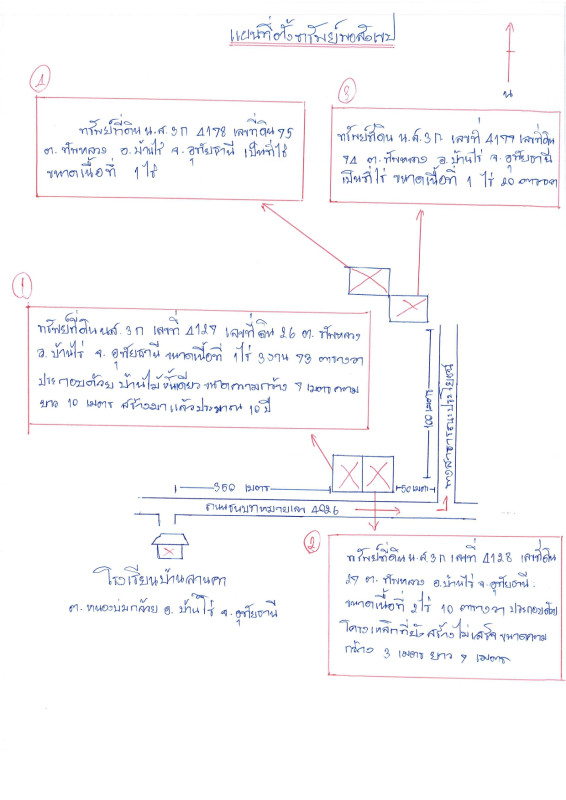 แผนที่ตั้งทรัพย์พอสังเขป
น
4
ทรัพย์ที่ดิน น.ส.3ก 4198 เลขที่ดิน 75
ต. ทัพหลวง อ.บ้านไร่ จ.อุทัยธานี เป็นที่ไร่
ขนาดเนื้อที่ 1 ไร่
3
ทรัพย์ที่ดิน น.ส.3ก เลขที่ 4199 เลขที่ดิน
74 ต.ทัพหลวง อ.บ้านไร่ จ.อุทัยธานี
เป็นที่ไร่ ขนาดเนื้อที่ 1 ไร่ 20 ตารางวา
1
ทรัพย์ที่ดิน น.ส. 3ก เลขที่ 4129 เลขที่ดิน 26 ต. ทัพหลวง
อ.บ้านไร่ จ. อุทัยธานี ขนาดเนื้อที่ 1ไร่ 3งาน 93 ตารางวา
ประกอบด้วย บ้านไม้ชั้นเดียว ขนาดความกว้าง 9 เมตร ความ
ยาว 10 เมตร สร้างมาแล้วประมาณ 10 ปี
100 เมตร
ทางสาธารณประโยชน์
350 เมตร
50 เมตร
ถนนชนบทหมายเลข 4026
โรงเรียนบ้านลานคา
ต. หนองบ่มกล้วย อ. บ้านไร่ จ. อุทัยธานี
2
ทรัพย์ที่ดิน น.ส.3ก เลขที่ 4128 เลขที่ดิน
27 ต. ทัพหลวง อ.บ้านไร่ จ.อุทัยธานี
ขนาดเนื้อที่ 2ไร่ 10 ตารางวา ประกอบด้วย
โครงเหล็กที่ยังสร้างไม่เสร็จ ขนาดความ
กว้าง 3 เมตร ยาว 9 เมตร